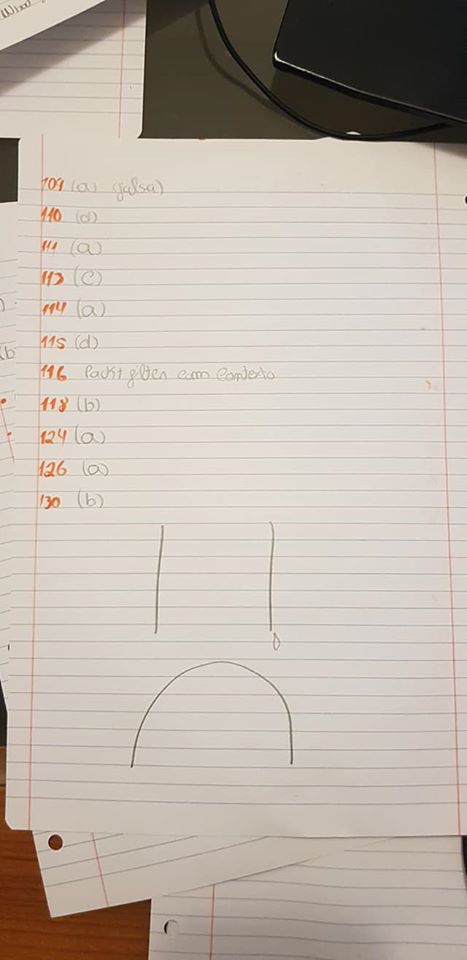 What
109 (a) falsa)
110 (d)
111 (a)
113 (c)
114 (a)
115 (d)
116 Packt filter com contexto
118 (b)
124 (a)
126 (a)
130 (b)